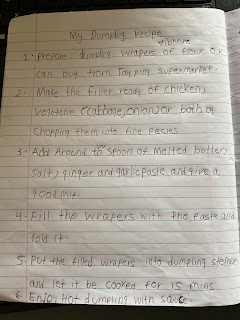 My Dumpling recipe
1. Prepare dumpling wrapers of flour or
can buy from supermarket.
2. Make the filler ready of chicken,
vegetable (cabbage, onion) or both by
chopping them into fine pecies.
3. Add Around two spoon of melted butter,
salt, ginger and garlic paste and give a
good mix.
4. Fill the wrapers with the paste and
fold it.
5. Put the filled wrapers into dumpling stemer
and let it be cooked for 15 mins
6. Enjoy Hot dumpling with sauc